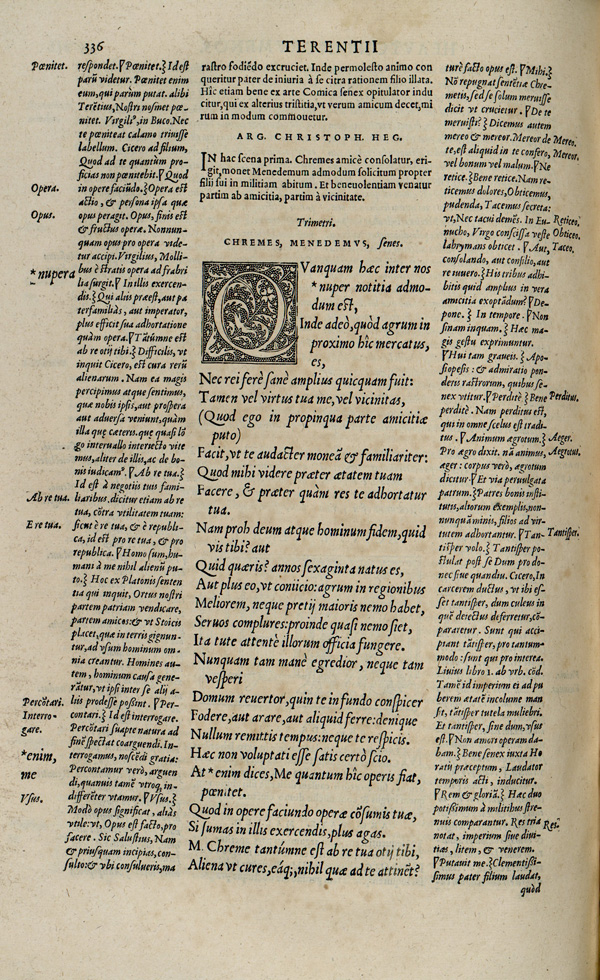 336
TERENTII
Pœnitet.
Opera.
Opus.
*nupera
Ab re tua.
E re tua.
Percōtari.
Interro-
gare.
*enim,
me
Vsus.
respondet. ¶Pœnitet.⁊ Id est
parū videtur. Pœnitet enim
eum, qui parùm putat. alibi
Terētius, Nostri nosmet pœ-
nitet. Virgilius, in Buco. Nec
te pœniteat calamo triuisse
labellum. Cicero ad filium,
Quod ad te quantùm pro-
ficias non pœnitebit. ¶Quod
in opere faciūdo.⁊ Opera est
actio, & persona ipsa quæ
opus peragit. Opus, finis est
& fructus operæ. Nonnun-
quam opus pro opera vide-
tur accipi. Virgilius, Molli-
bus è stratis opera ad fabrilia
surgit. ¶In illis exercen-
dis.⁊ Qui aliis præest, aut pa
terfamiliâs, aut imperator,
plus efficit sua adhortatione
quàm opera. ¶Tatúmne est
ab re otij tibi.⁊ Difficilis, vt
inquit Cicero, est cura rerū
alienarum. Nam ea magis
percipimus atque sentimus,
quæ nobis ipsis, aut prospera
aut aduersa veniunt, quàm
illa quæ cæteris. quę quasi lō
go interuallo interiecto vide
mus, aliter de illis, ac de no-
bis iudicam⁹. ¶Ab re tua.⁊
Id est à negotiis tuis fami-
liaribus. dicitur etiam ab re
tua, cōtra vtilitatem tuam:
sicut è re tua, & è republi-
ca, id est pro re tua, & pro
republica. ¶Homo sum, hu-
mani à me nihil alienū pu-
to.⁊ Hoc ex Platonis senten
tia qui inquit, Ortus nostri
partem patriam vendicare,
partem amicos: & vt Stoicis
placet, quæ in terris gignun-
tur, ad vsum hominum om-
nia creantur. Homines au-
tem, hominum causa gene-
rātur, vt ipsi inter se alij a-
liis prodesse possint. ¶Per-
contari.⁊ Id est interrogare.
Percōtari suapte natura ad
finē spectat coarguendi. In-
terrogamus, noscēdi gratia:
Percontamur verò, arguen
di, quanuis tamē vtroq, in-
differēter vtamur. ¶Vsus.⁊
Modò opus significat, aliâs
vtile: vt, Opus est facto, pro
facere. Sic Salustius, Nam
& priusquam incipias, con-
sulto: & vbi consulueris, ma
rastro fodiēdo excruciet. Inde permolesto animo con
queritur pater de iniuria à se citra rationem filio illata.
Hic etiam bene ex arte Comica senex opitulator indu
citur, qui ex alterius tristitia, vt verum amicum decet, mi
rum in modum commouetur.
ARG. CHRISTOPH. HEG.
IN hac scena prima. Chremes amicè consolatur, eri-
git, monet Menedemum admodum solicitum propter
filii sui in militiam abitum. Et beneuolentiam venatur
partim ab amicitia, partim à vicinitate.
Trimetri.
CHREMES, MENEDEMVS, senes.
QVanquam hæc inter nos
*nuper notitia admo-
dum est,
Inde adeò, quòd agrum in
proximo hîc mercatus,
es,
Nec rei ferè sanè amplius quicquam fuit:
Tamen vel virtus tua me, vel vicinitas,
(Quod ego in propinqua parte amicitiæ
puto)
Facit, vt te audacter moneā & familiariter:
Quod mihi videre præter ætatem tuam
Facere, & præter quàm res te adhortatur
tua.
Nam proh deum atque hominum fidem, quid
vis tibi? aut
Quid quæris? annos sexaginta natus es,
Aut plus eo, vt coniicio: agrum in regionibus
Meliorem, neque pretij maioris nemo habet,
Seruos complures: proinde quasi nemo siet,
Ita tute attentè illorum officia fungere.
Nunquam tam manè egredior, neque tam
vesperi
Domum reuertor, quin te in fundo conspicer
Fodere, aut arare, aut aliquid ferre: denique
Nullum remittis tempus: neque te respicis.
Hæc non voluptati esse satis certò scio.
At *enim dices, Me quantum hîc operis fiat,
pœnitet.
Quod in opere faciundo operæ cōsumis tuæ,
Si sumas in illis exercendis, plus agas.
M. Chreme tantúmne est ab re tua otij tibi,
Aliena vt cures, eáq;, nihil quæ ad te attinēt?
ture facto opus est. ¶Mihi.⁊
Nō repugnat sentētiæ Chre-
metis, sed se solum meruisse
dicit vt crucietur. ¶De te
meruistī?⁊ Dicemus autem
mereo & mereor. Mereor de
te, est aliquid in te confero,
vel bonum vel malum. ¶Ne
retice.⁊ Bene retice. Nam re-
ticemus dolores, Obticemus,
pudenda, Tacemus secreta:
vt, Nec tacui demēs. In Eu-
nucho, Virgo conscissa veste
labrymans obticet. ¶Aut
consolando, aut consilio, aut
re iuuero.⁊ His tribus adhi-
bitis quid amplius in vera
amicitia exoptādum? ¶De-
pone.⁊ In tempore. ¶Non
sinam inquam.⁊ Hæc ma-
gis gestu exprimuntur.
¶Hui tam graueis.⁊ Apo-
siopesis: & admiratio pon-
deris rastrorum, quibus se-
nex vtitur. ¶Perditè.⁊ Bene
perditè. Nam perditus est,
qui in omne scelus est tradi-
tus. ¶Animum ægrotum.⁊
Pro ægro dixit. nā animus,
æger: corpus verò, ægrotum
dicitur. ¶Et via peruulgata
patrum.⁊ Patres bonis insti-
tutis, aliorum exemplis, non-
nunquā minis, filios ad vir-
tutem adhortantur. ¶Tan-
tisper volo.⁊ Tantisper po-
stulat post se Dum pro do-
nec siue quandiu. Cicero, In
carcerem ductus, vt ibi es-
set tantisper, dum culeus in
quē deiectus deferretur, cō-
pararetur. Sunt qui acci-
piant tātisper, pro tantum-
modo: sunt qui pro interea.
Liuius libro 1. ab vrb. cōd.
Tamē id imperium ei ad pu
berem ætatē incolume man
sit, tātisper tutela muliebri.
Et tantisper, sine dum, vsus
est. ¶Non amori operam da-
bam.⁊ Bene senex iuxta Ho-
ratij præceptum, Laudator
temporis acti, inducitur.
¶Rem & gloriā.⁊ Hæc duo
potissimum à militibus stre-
nuis comparantur. Res tria
notat, imperium siue diui-
tias, litem, & venerem.
¶Putauit me.⁊ Clementissi-
simus pater filium laudat,
quòd
Mereo,
Mereor.
Reticeo,
Obticeo,
Taceo.
Perditus.
Aeger.
Aegrotus.
Tantisper.
Res.